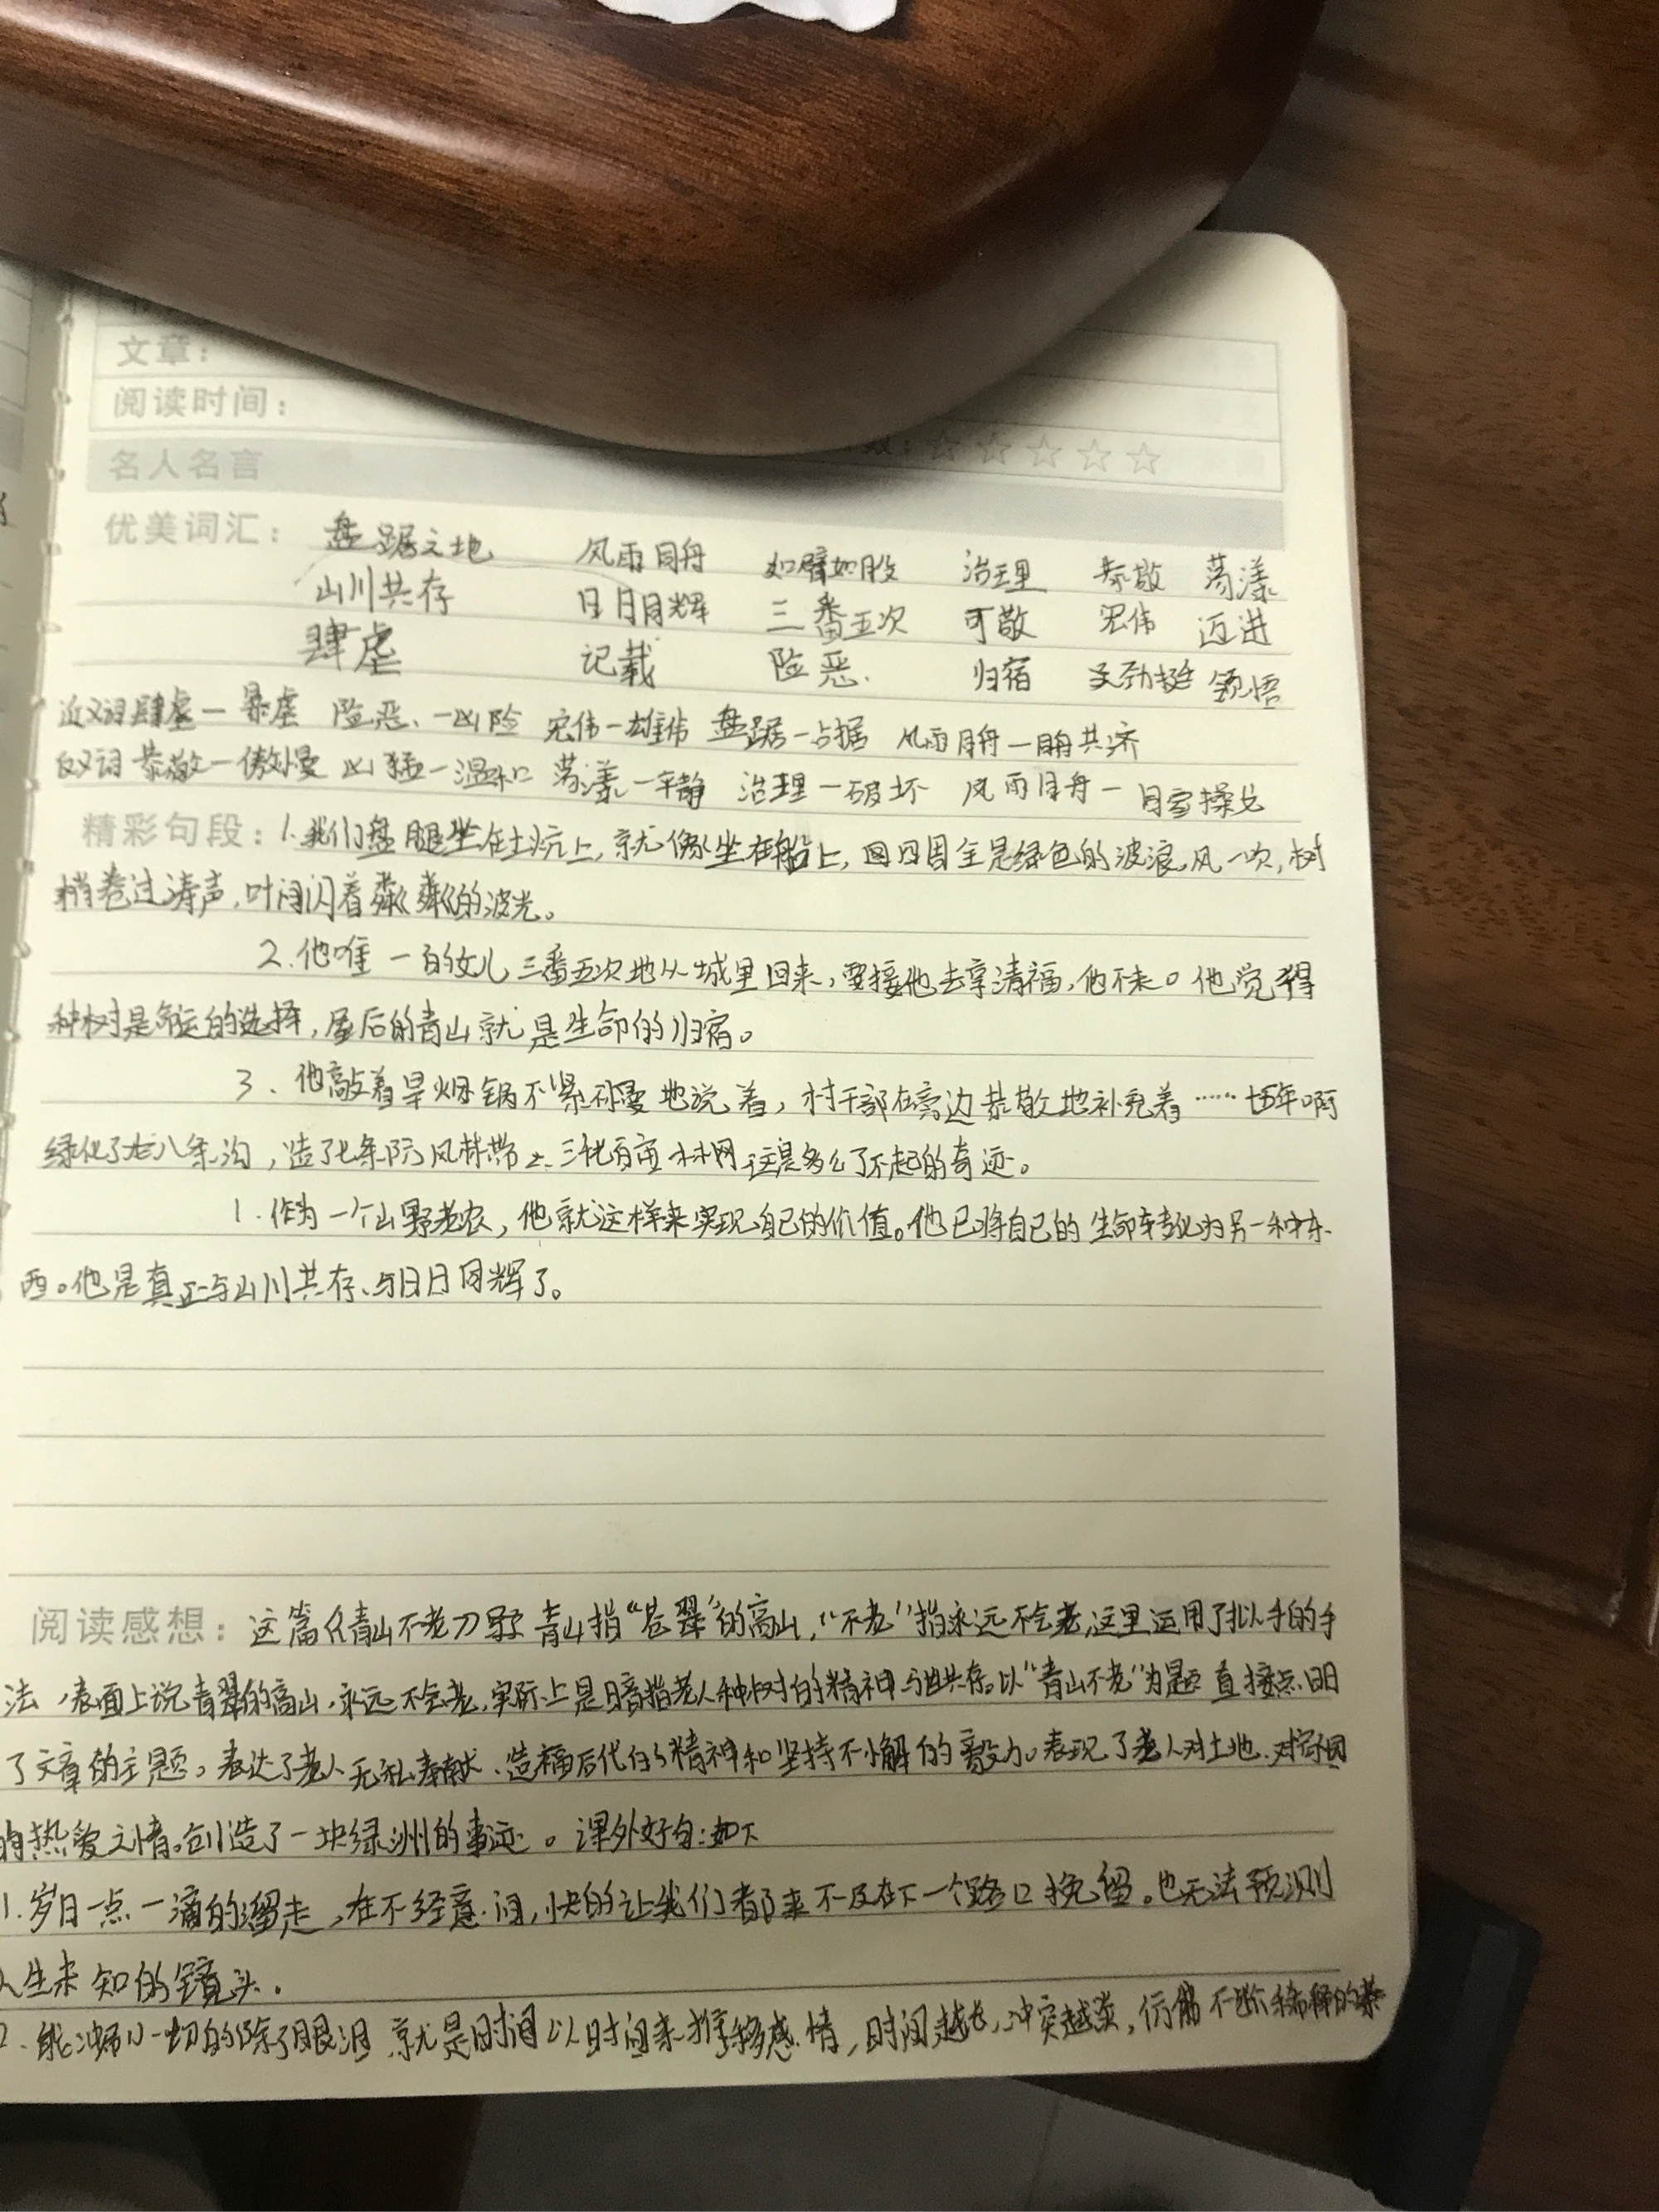 文章：
阅读时间：
数：☆☆☆☆☆
名人名言
优美词汇： 盘踞之地 风雨同舟 如臂如股 治理 恭敬 荡漾
山川共存 日月同辉 三番五次 可敬 宏伟 迈进
肆虐 记载 险恶. 归宿 劲挺 领悟
近义词 肆虐—暴虐 险恶、—凶险 宏伟—雄伟 盘踞—占据 风雨同舟—同舟共济
反义词 恭敬—傲慢 凶猛—温和 荡漾—平静 治理—破坏 风雨同舟—同室操戈
精彩句段：1.我们盘腿坐在土炕上，就像坐在船上，四周全是绿色的波浪，风一吹，树
梢卷过涛声，叶间闪着粼粼的波光。
2.他唯一的女儿三番五次地从城里回来，要接他去享清福，他不去。他觉得
种树是命运的选择，屋后的青山就是生命的归宿。
3、他敲着旱烟锅不紧不慢地说着，村干部在旁边恭敬地补充着……十五年啊
绿化了八条沟，造了七条防风林带三千七百亩林网这是多么了不起的奇迹。
1.作为一个山野老农，他就这样来实现自己的价值。他已将自己的生命转化为另一种东
西。他是真正与山川共存、与日月同辉了。
阅读感想：这篇《青山不老》 青山指“苍翠”的高山，“不老”指永远不会老，这里运用了拟人手的手
法，表面上说青翠的高山，永远不会老，实际上是暗指老人种树的精神与世共存。以“青山不老”为题 直接点明
了文章的主题。表达了老人无私奉献、造福后代的精神和坚持不懈的毅力。表现了老人对土地、对家园
的热爱之情。创造了一块绿洲的事迹。课外好句：如下
1.岁月一点一滴的溜走，在不经意间，快的让我们都来不及在下一个路口挽留。也无法预测
人生未知的镜头.
2.能冲刷一切的除了眼泪 就是时间 以时间来推移感情，时间越长，冲突越淡，仿佛不断稀释的茶